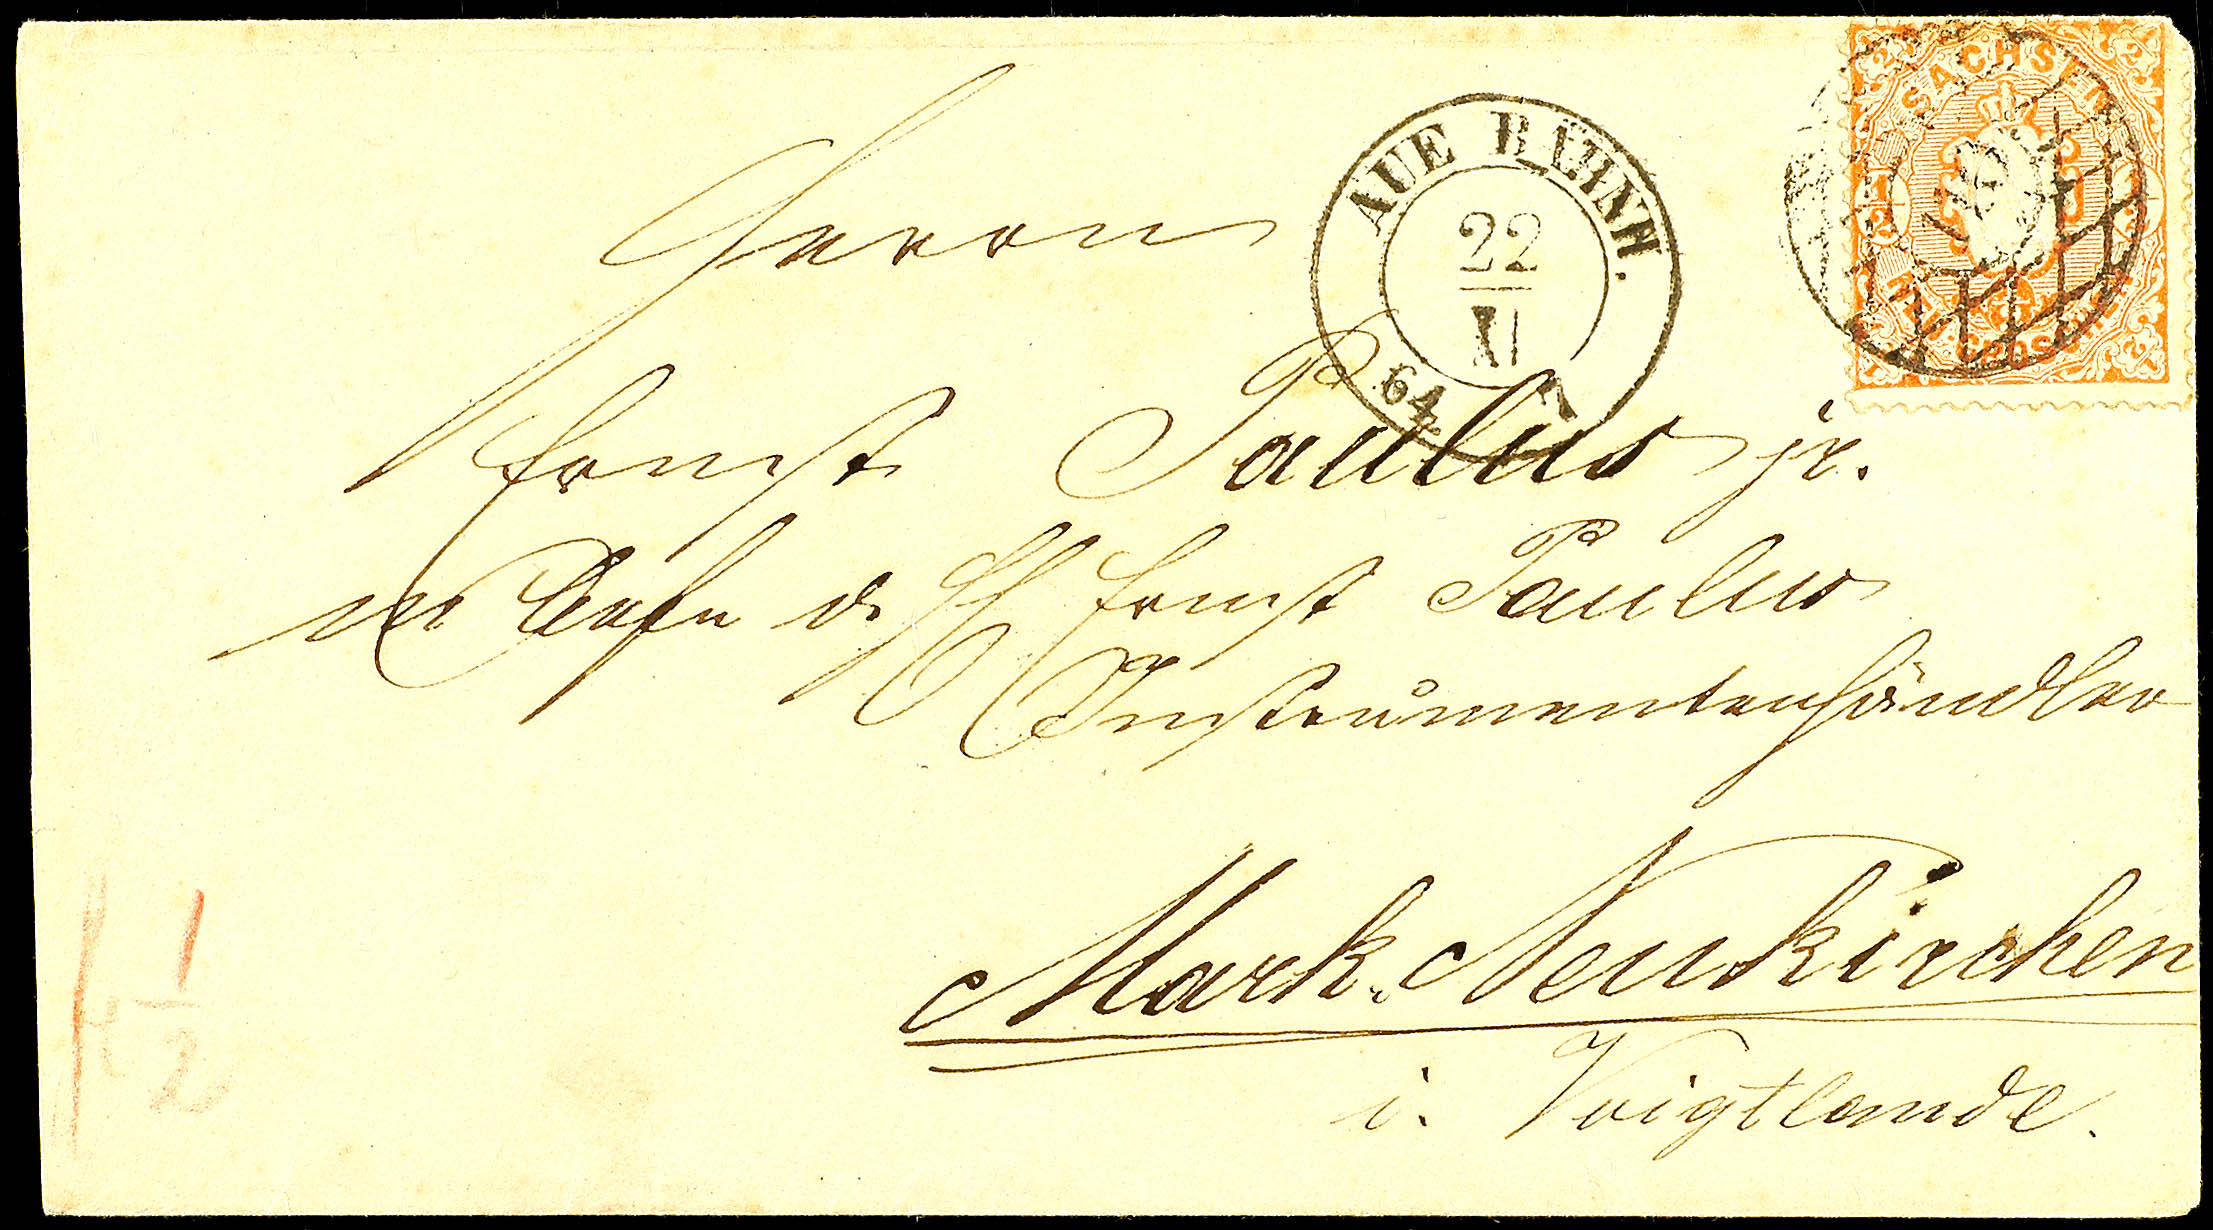 SACHSEN
1/2
AUE BAHNH.
22
II
64 7
Herrn
Ernst Paulus jr.
Ernst Paulus
Instrumentenhändler
Mark-Neukirchen
i. Voigtlande.
1/2